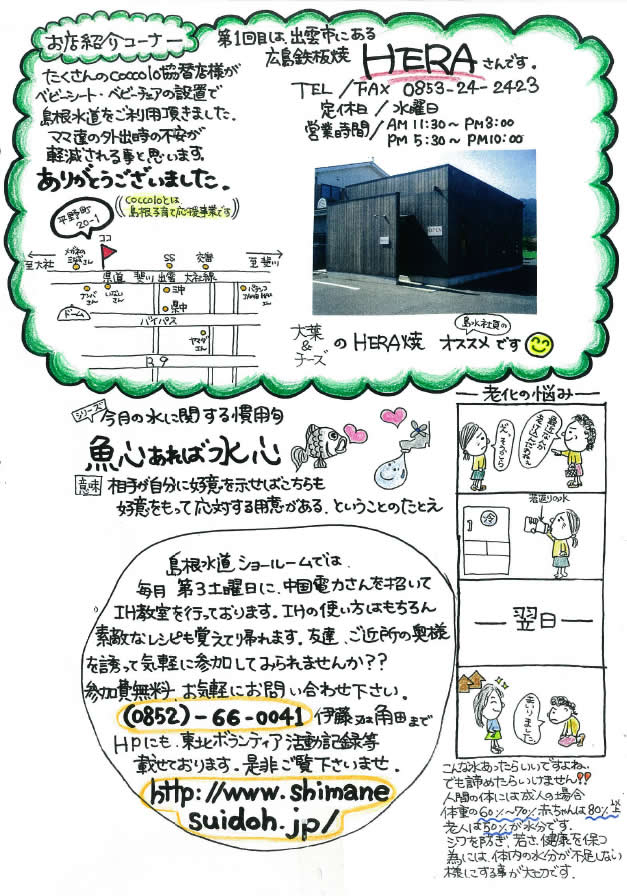 お店紹介コーナー
第1回目は、出雲市にある
広島鉄板焼 HERA さんです。
TEL/FAX 0853-24-2423
定休日/水曜日
営業時間/AM11:30~PM3:00
PM5:30~PM10:00
たくさんのcoccolo協賛店様が
ベビーシート・ベビーチェアの設置で
島根水道をご利用頂きました。
ママ達の外出時の不安が
軽減される事と思います。
ありがとうございました。
coccoloとは
島根子育て応援事業です
平野町
20-1
ココ
至大社
メガネの
三城さん
SS
交番
至斐川
県道 斐川出雲大社線
ナンバ
さん
いない
さん
三中
県中
パチンコ
ドーム
バイパス
ヤマダ
さん
R9
大葉
&
チーズ
のHERA焼
島水社員の
オススメです
シリーズ
今月の水に関する慣用句
魚心あれば水心
意味
相手が自分に好意を示せばこちらも
好意をもって応対する用意がある、ということのたとえ
島根水道ショールームでは、
毎月 第3土曜日に、中国電力さんを招いて
IH教室を行っております。IHの使い方はもちろん
素敵なレシピも覚えて帰れます。友達、ご近所の奥様
を誘って気軽に参加してみられませんか??
参加費無料、お気軽にお問い合わせ下さい。
(0852)-66-0041 伊藤又は角田まで
HPにも、東北ボランティア活動記録等
載せております。是非ご覧下さいませ。
http://www.shimane
suidoh.jp/
老化の悩み
若返りの水
冷
翌日
まいりました
こんな水あったらいいですよね、
でも諦めたらいけません!!
人間の体には成人の場合
体重の60%~70%赤ちゃんは80%以上
老人は50%が水分です。
シワを防ぎ、若さ、健康を保つ
為には、体内の水分が不足しない
様にする事が大切です。